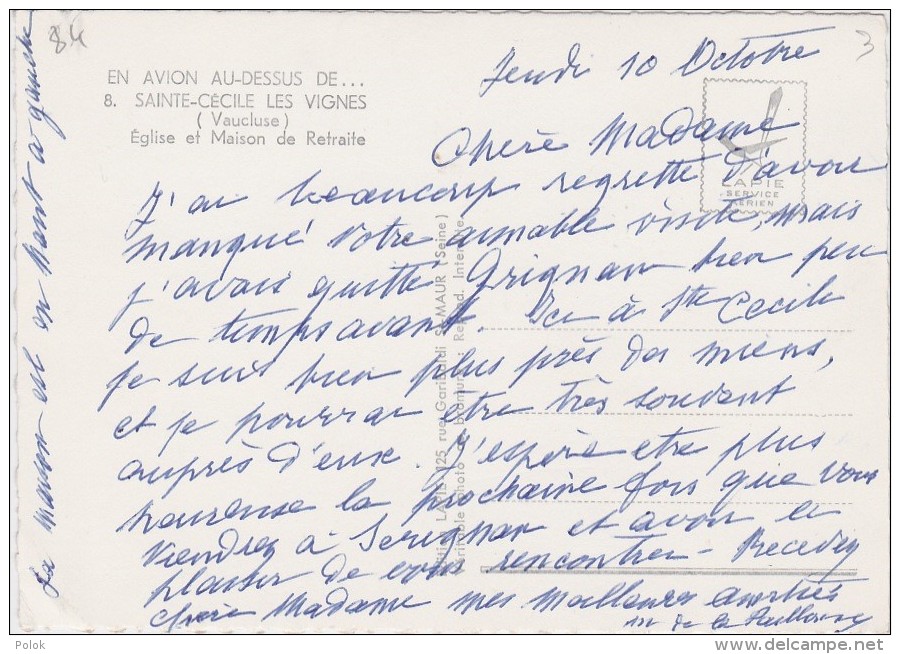 84
3
EN AVION AU-DESSUS DE...
8. SAINTE-CÉCILE LES VIGNES
(Vaucluse)
Église et Maison de Retraite
LAPIE
SERVICE
AÉRIEN
Jeudi 10 Octobre
Chère Madame
J'ai beaucoup regretté d'avoir
manqué votre aimable visite, mais
j'avais quitté Grignan bien peu
de temps avant. Ici à Ste Cecile
je suis bien plus près des miens,
et je pourrai être très souvent
auprès d'eux. J'espère etre plus
heureuse la prochaine fois que vous
viendrez à Serignan et avoir le
plaisir de vous rencontrer - Recevez
chère Madame mes meilleures amitiés
de la
La maison est en haut à gauche
LAPIE 125 rue Garibaldi St-MAUR (Seine)
Interdite
Polok
www.delcampe.net